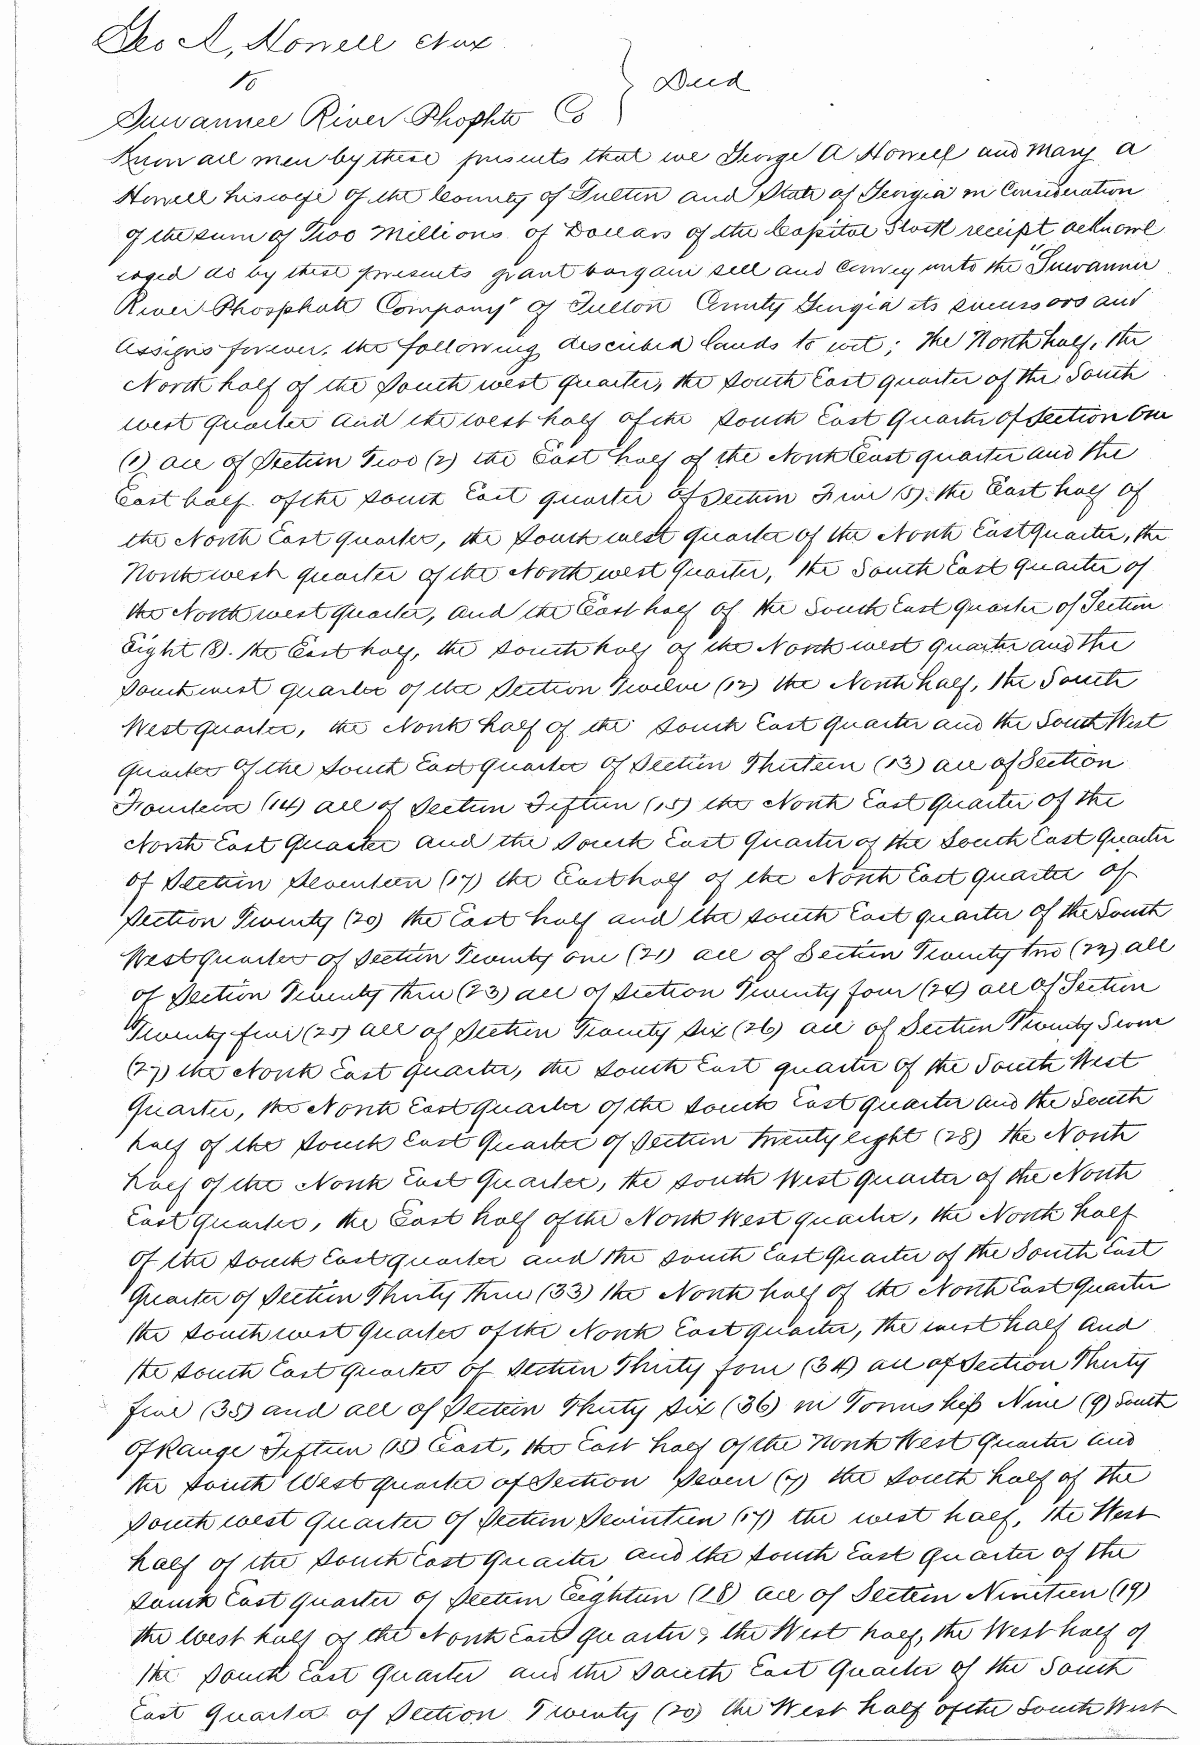 Geo A, Howell et ux
to
Deed
Suwannee River Phosphte Co
Know all men by these presents that we George A Howell and Mary A
Howell his wife of the County of Fulton and State of Georgia in Consideration
of the sum of Two Millions of Dollars of the Capital Stock receipt acknowl
edged do by these presents grant bargain sell and convey unto the "Suwannee
River Phosphate Company" of Fulton County Georgia its successors and
Assigns forever, the following described lands to wit; the North half, the
North half of the South west quarter, the South East quarter of the South
west quarter and the west half of the South East Quarter of Section One
(1) all of Section Two (2) the East half of the North East quarter and the
East half of the South East quarter of Section Five (5). the East half of
the North East quarter, the South west quarter of the North East Quarter, the
North west quarter of the North west Quarter, the South East quarter of
the North west quarter, and the East half of the South East quarter of Section
Eight (8). the East half, the South half of the North west quarter and the
South west quarter of the Section Twelve (12) the North half, the South
West quarter, the North half of the South East quarter and the South West
quarter of the South East quarter of Section Thirteen (13) all of Section
Fourteen (14) all of Section Fifteen (15) the North East Quarter of the
North East Quarter and the South East Quarter of the South East Quarter
of Section Seventeen (17) the East half of the North East quarter of
Section Twenty (20) the East half and the South East quarter of the South
West quarter of Section Twenty one (21) all of Section Twenty two (22) all
of Section Twenty three (23) all of Section Twenty four (24) all of Section
Twenty five (25) all of Section Twenty Six (26) all of Section Twenty Seven
(27) the North East Quarter, the South East quarter of the South West
Quarter, the North East Quarter of the South East quarter and the South
half of the South East Quarter of Section twenty eight (28) the North
half of the North East Quarter, the South West Quarter of the North
East quarter, the East half of the North West quarter, the North half
of the South East quarter and the South East Quarter of the South East
Quarter of Section Thirty three (33) the North half of the North East Quarter
the South west Quarter of the North East quarter, the west half and
the South East Quarter of Section Thirty four (34) all of Section Thirty
five (35) and all of Section Thirty Six (36) in Township Nine (9) South
of Range Fifteen (15) East, the East half of the North West Quarter and
the South West quarter of Section Seven (7) the South half of the
South west quarter of Section Seventeen (17) the west half, the West
half of the South East Quarter and the South East quarter of the
South East quarter of Section Eighteen (18) all of Section Nineteen (19)
the West half of the North East quarter, the West half, the West half of
the South East Quarter and the South East Quarter of the South
East Quarter of Section Twenty (20) the West half of the South West